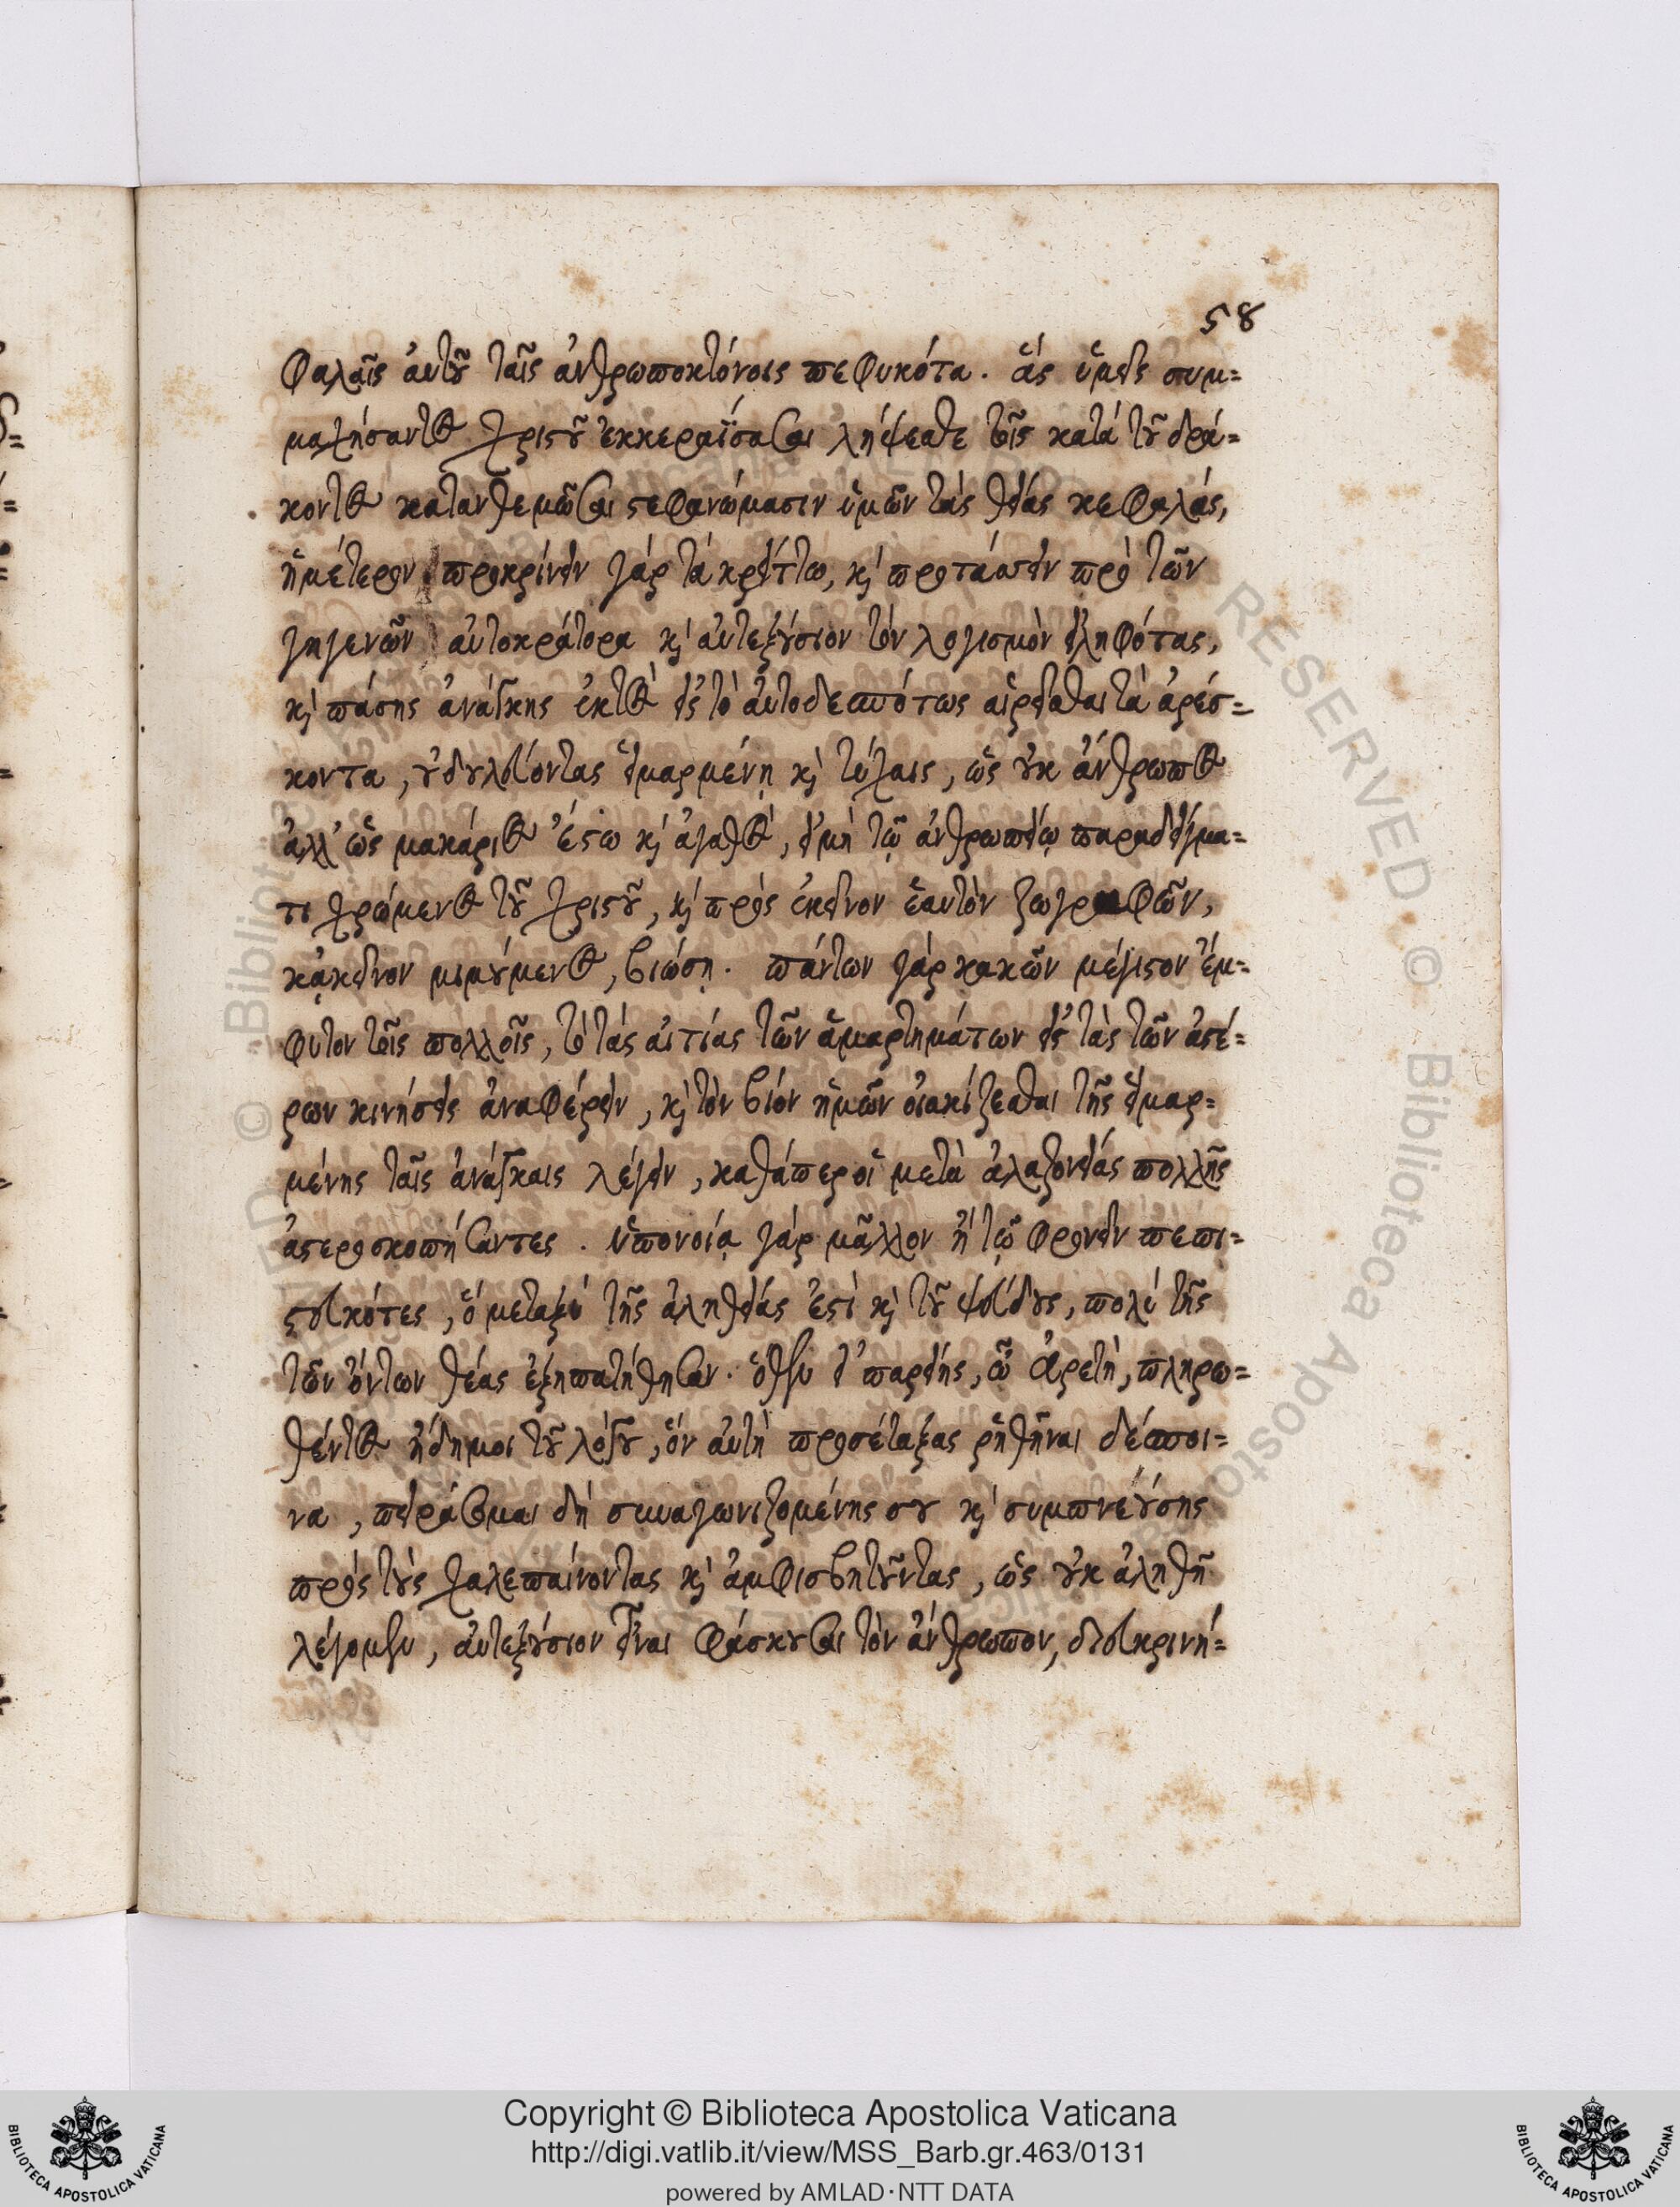 58
φαλαῖς αὐτοῦ ταῖς ἀνθρωποκτόνοις πεφυκότα. ἃς ὑμεῖς συμ=
μαχήσαντος Χριστοῦ ἐκκεραΐσασαι λήψεσθε τοῖς κατὰ τοῦ δρά=
κοντος κατανθεμῶσαι στεφανώμασιν ὑμῶν τὰς θείας κεφαλάς,
ἡμέτερον προκρίνειν γὰρ τὰ κρείττω, καὶ προτάσσειν πρὸ τῶν
γηγενῶν αὐτοκράτορα καὶ αὐτεξούσιον τὸν λογισμὸν εἰληφότας,
καὶ πάσης ἀνάγκης ἐκτὸς εἰς τὸ αὐτοδεσπότως αἱρεῖσθαι τὰ ἀρέσ=
κοντα, οὐ δουλεύοντας εἱμαρμένῃ καὶ τύχαις, ὡς οὐκ ἄνθρωπος
ἀλλ' ὡς μακάριος ἔστω καὶ ἀγαθός, εἰ μὴ τῷ ἀνθρωπείῳ παραδείγμα=
τι χρώμενος τοῦ Χριστοῦ, καὶ πρὸς ἐκεῖνον ἑαυτὸν ζωγραφῶν,
κἀκεῖνον μιμούμενος, βιώσῃ. πάντων γὰρ κακῶν μέγιστον ἔμ=
φυτον τοῖς πολλοῖς, τὸ τὰς αἰτίας τῶν ἁμαρτημάτων εἰς τὰς τῶν ἀστέ=
ρων κινήσεις ἀναφέρειν, καὶ τὸν βίον ἡμῶν οἰακίζεσθαι τῆς εἱμαρ=
μένης ταῖς ἀνάγκαις λέγειν, καθάπερ οἱ μετὰ ἀλαζονείας πολλῆς
ἀστεροσκοπήσαντες. ὑπονοίᾳ γὰρ μᾶλλον ἢ τῷ φρονεῖν πεπι=
στευκότες, ὃ μεταξὺ τῆς ἀληθείας ἐστὶ καὶ τοῦ ψεύδους, πολὺ τῆς
τῶν ὄντων θέας ἐξηπατήθησαν. ὅθεν εἰ παρείης, ὦ Ἀρετή, πληρω=
θέντος ἤδη μοι τοῦ λόγου, ὃν αὐτὴ προσέταξας ῥηθῆναι δέσποι=
να, πειράσομαι δὴ συναγωνιζομένης σου καὶ συμπνεούσης
πρὸς τοὺς χαλεπαίνοντας καὶ ἀμφισβητοῦντας, ὡς οὐκ ἀληθῆ
λέγομεν, αὐτεξούσιον εἶναι φάσκουσαι τὸν ἄνθρωπον, διευκρινή=
Copyright © Biblioteca Apostolica Vaticana
http://digi.vatlib.it/view/MSS_Barb.gr.463/0131
powered by AMLAD·NTT DATA
BIBLIOTECA APOSTOLICA VATICANA
BIBLIOTECA APOSTOLICA VATICANA